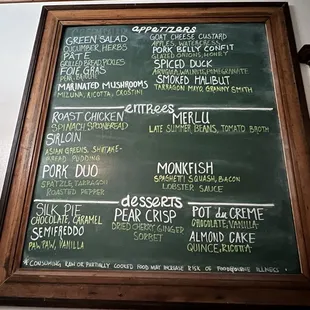 appetizers
GREEN SALAD
CUCUMBER, HERBS
PATE
GRILLED BREAD, PICKLES
FOIE GRAS
PEAR, BANYULS
MARINATED MUSHROOMS
MIZUNA, RICOTTA, CROSTINI
GOAT CHEESE CUSTARD
APPLES, WATERCRESS
PORK BELLY CONFIT
GLAZED ONIONS, HONEY
SPICED DUCK
ARUGULA, WALNUTS, POMEGRANATE
SMOKED HALIBUT
TARRAGON MAYO, GRANNY SMITH
entrees
ROAST CHICKEN
SPINACH, SPOONBREAD
SIRLOIN
ASIAN GREENS, SHIITAKE-
BREAD PUDDING
PORK DUO
SPATZLE, TARRAGON
ROASTED PEPPER
MERLU
LATE SUMMER BEANS, TOMATO BROTH
MONKFISH
SPAGHETTI SQUASH, BACON
LOBSTER SAUCE
desserts
SILK PIE
CHOCOLATE, CARAMEL
SEMIFREDDO
PAW PAW, VANILLA
PEAR CRISP
DRIED CHERRY, GINGER
SORBET
POT du CREME
CHOCOLATE, VANILLA
ALMOND CAKE
QUINCE, RICOTTA
* CONSUMING RAW OR PARTIALLY COOKED FOOD MAY INCREASE RISK OF FOODBORNE ILLNESS